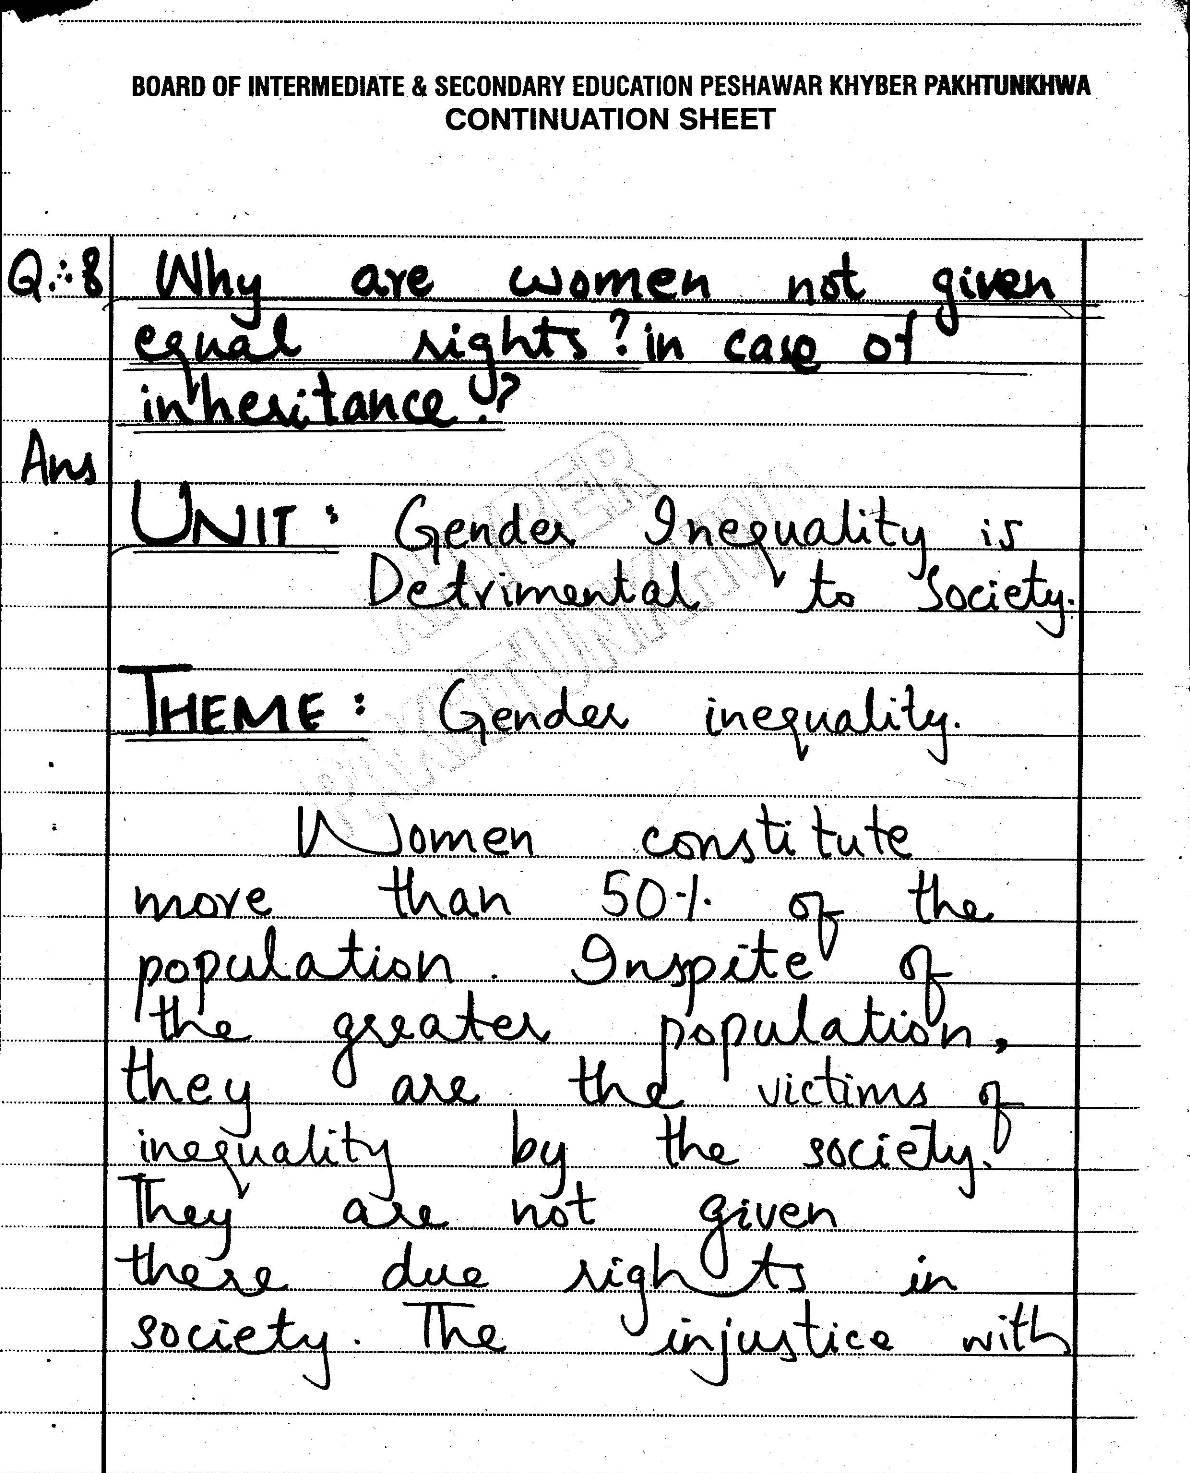 BOARD OF INTERMEDIATE & SECONDARY EDUCATION PESHAWAR KHYBER PAKHTUNKHWA
CONTINUATION SHEET
Q.∴8 Why are women not given
equal rights? in case of
inheritance?
Ans
UNIT: Gender Inequality is
Detrimental to Society.
THEME: Gender inequality.
Women constitute
more than 50% of the
population. Inspite of
the greater population,
they are the victims of
inequality by the society.
They are not given
these due rights in
society. The injustice with
KHYBER
PAKHTUNKHWA